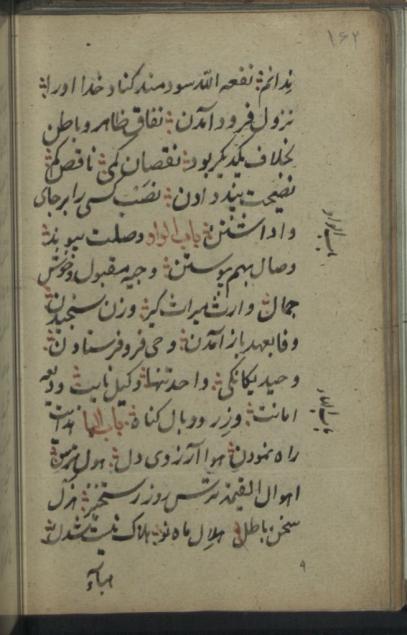 ۱۶۲
ندانم نفعه الله سودمند کناد خدا اورا
نزول فرود آمدن نفاق ظاهر و باطن
بخلاف یکدیگر بود نقصان کمی ناقص کم
نصیحت پند دادن نصب کسی را بر جای
وا داشتن باب الواو وصلت پیوند
وصال بهم پیوستن وجیه مقبول و خوش
جمال وارث میراث گیر وزن سنجیدن
وفا بعهد باز آمدن وحی فرو فرستادن
وحید یگانگی واحد تنها وکیل نایب ودیعه
امانت وزر و وبال گناه باب الها هدایت
راه نمودن هوا آرزوی دل هول ترس
اهوال القیمة ترس روز رستخیز هزل
سخن باطل هلال ماه نو هلاک نیست شدن
هباء
باب الواو
باب الهاء